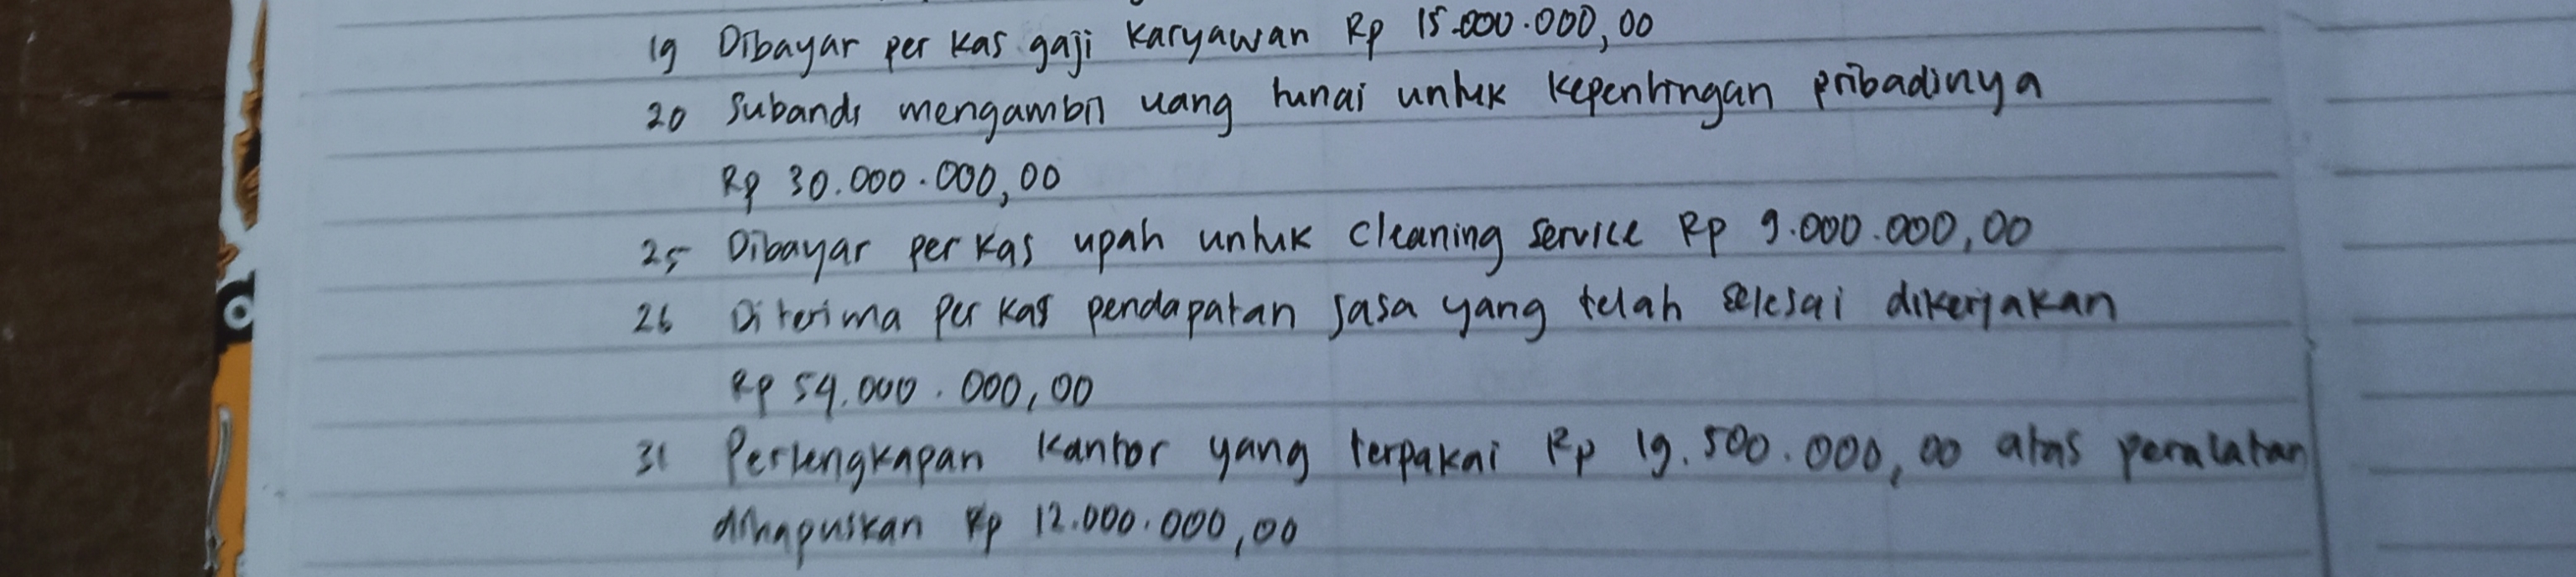 19 Dibayar per kas gaji karyawan Rp 15.000.000,00
20 Subandi mengambil uang tunai untuk kepentingan pribadinya
Rp 30.000.000,00
25 Dibayar per kas upah untuk cleaning service Rp 9.000.000,00
26 Diterima per kas pendapatan jasa yang telah selesai dikerjakan
Rp 54.000.000,00
31 Perlengkapan kantor yang terpakai Rp 19.500.000,00 atas peralatan
dihapuskan Rp 12.000.000,00